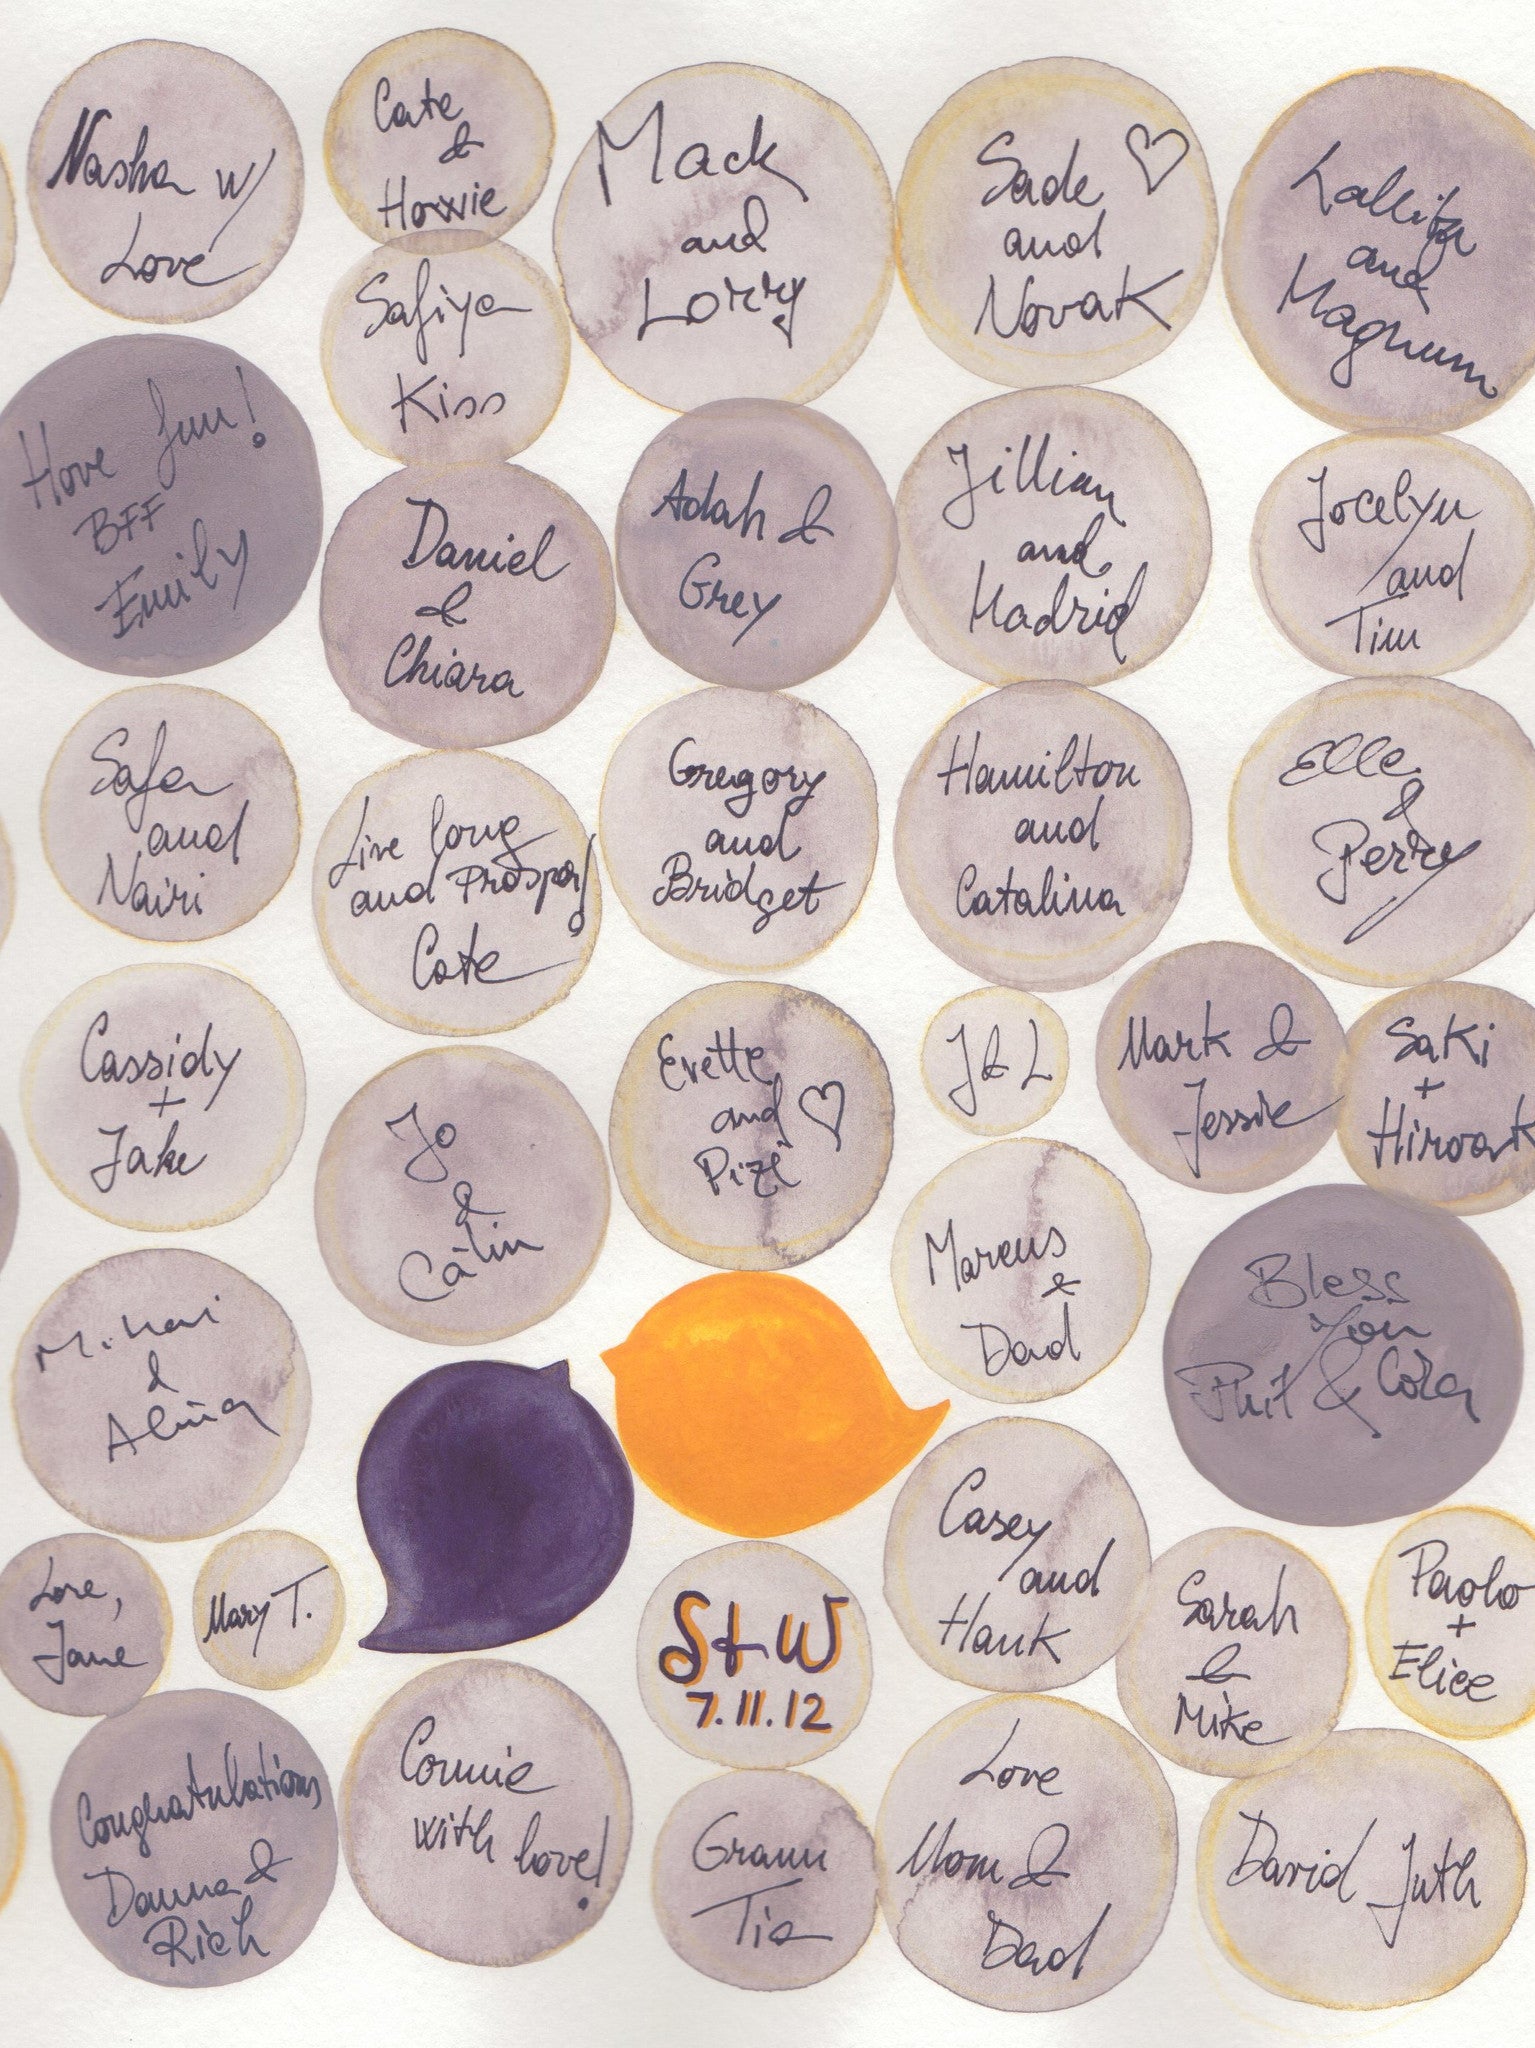 Nasha w/
Love
Cate
&
Howie
Mack
and
Lorry
Sade
and
Novak
Lallita
and
Magnum
Have fun!
BFF
Emily
Safiya
Kiss
Daniel
&
Chiara
Adah &
Grey
Jillian
and
Madrid
Jocelyn
and
Tim
Safa
and
Nairi
Live long
and Prosper!
Cate
Gregory
and
Bridget
Hamilton
and
Catalina
Elle
&
Perry
Cassidy
+
Jake
Jo
&
Călin
Evette
and
Pizi
J & L
Mark &
Jessie
Saki
+
Marcus
&
Dad
Bless
You
Phil & Cora
Mihai
&
Alina
Casey
and
Hank
Love,
Jane
Mary T.
S+W
7.11.12
Sarah
&
Mike
Paolo
+
Elice
Congratulations
Danna &
Rich
Connie
with love!
Gram
Tia
Love
Mom &
Dad
David Juth